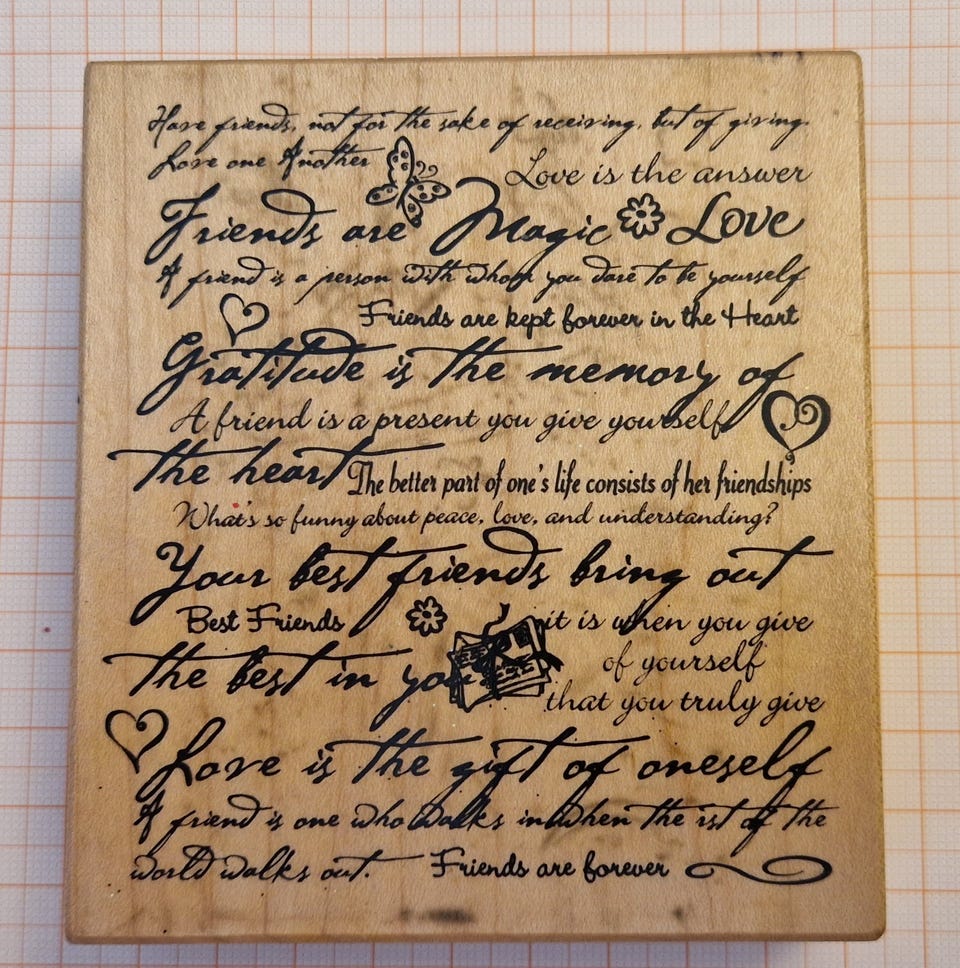 Have friends, not for the sake of receiving, but of giving.
Love one Another
Love is the answer
Friends are Magic Love
A friend is a person with whom you dare to be yourself
Friends are kept forever in the Heart
Gratitude is the memory of
A friend is a present you give yourself
the heart The better part of one's life consists of her friendships
What's so funny about peace, love, and understanding?
Your best friends bring out
Best Friends it is when you give
the best in you of yourself
that you truly give
Love is the gift of oneself
A friend is one who walks in when the rst of the
world walks out. Friends are forever